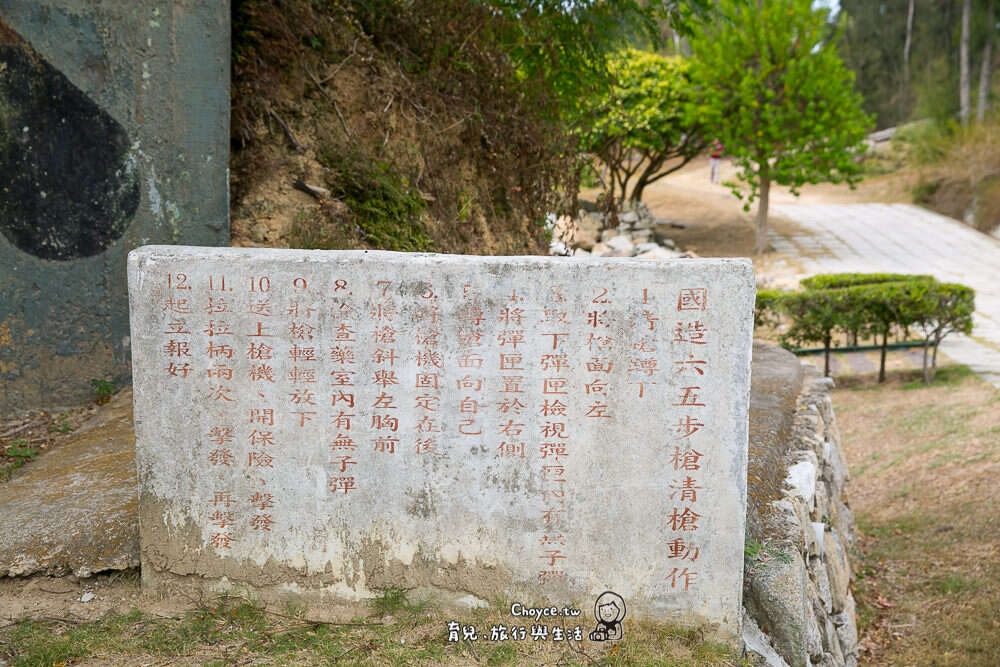 國造六五步槍清槍動作
1.考靶蹲下
2.將槍面向左
3.取下彈匣檢視彈匣內有無子彈
4.將彈匣置於右側
5.轉槍面向自己
6.將槍機固定在後
7.將槍斜舉左胸前
8.檢查藥室內有無子彈
9.將槍輕輕放下
10.送上槍機、開保險、擊發
11.拉拉柄兩次、擊發、再擊發
12.起立報好
Choyce.tw
育兒、旅行與生活